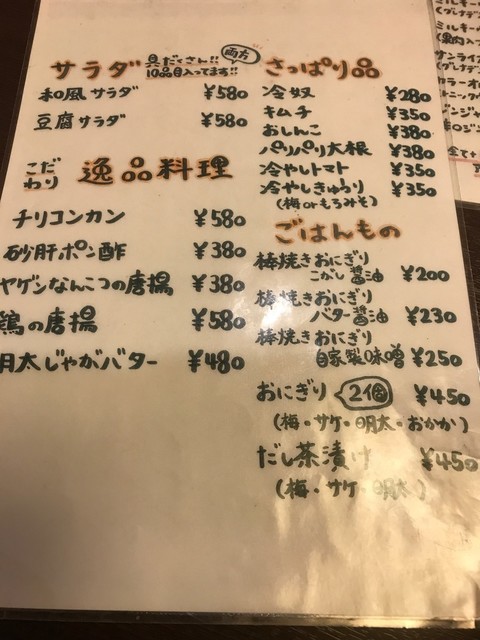 サラダ 具だくさん!! 両方
10品目入ってます!!
和風サラダ ¥580
豆腐サラダ ¥580
こだわり 逸品料理
チリコンカン ¥580
砂肝ポン酢 ¥380
ヤゲンなんこつの唐揚 ¥380
鶏の唐揚 ¥580
明太じゃがバター ¥480
さっぱり品
冷奴 ¥280
キムチ ¥350
おしんこ ¥380
パリパリ大根 ¥380
冷やしトマト ¥350
冷やしきゅうり ¥350
(梅orもろみそ)
ごはんもの
棒焼きおにぎり
こがし醤油 ¥200
棒焼きおにぎり
バター醤油 ¥230
棒焼きおにぎり
自家製味噌 ¥250
おにぎり 2個 ¥450
(梅・サケ・明太・おかか)
だし茶漬け ¥450
(梅・サケ・明太)
ミルキー
(グレナデ
ミルキー
サンライ
(グレナデ
カラーオ
ジンジャ